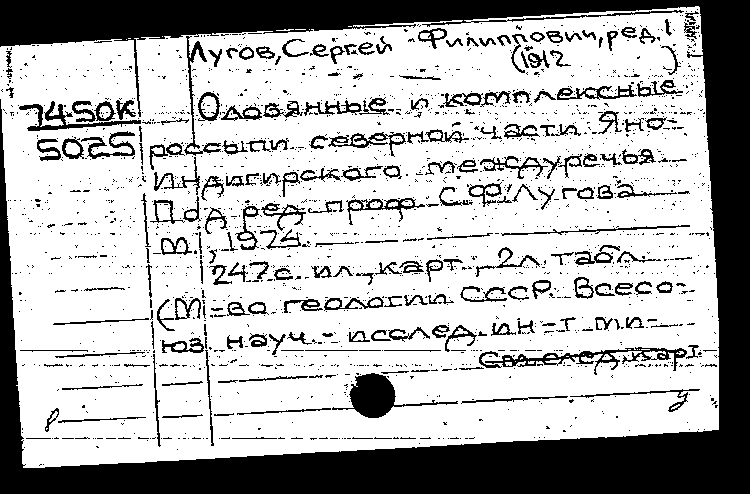 Лугов, Сергей Филиппович, ред.
(1912 )
74-50К
5025
Оловянные и комплексные
россыпи северной части Яно-
Индигирского междуречья.
Под ред. проф. С.Ф. Лугова.
М., 1974.
247 с. ил., карт.; 2 л. табл.
(М-во геологии СССР. Всесо-
юз. науч.-исслед. ин-т ми-
См. след. карт.
8 у